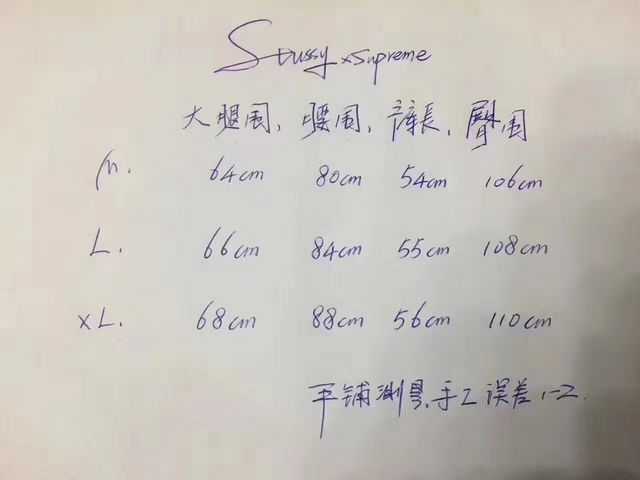 Stussy x Supreme
大腿围, 腰围, 裤長, 臀围
M. 64cm 80cm 54cm 106cm
L. 66cm 84cm 55cm 108cm
XL. 68cm 88cm 56cm 110cm
平铺测量,手工误差1-2.